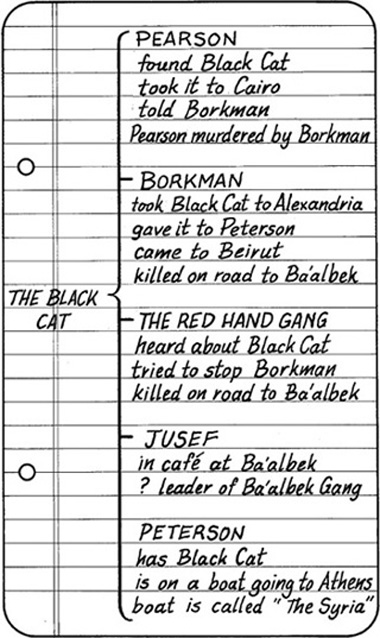 PEARSON
found Black Cat
took it to Cairo
told Borkman
Pearson murdered by Borkman
BORKMAN
took Black Cat to Alexandria
gave it to Peterson
came to Beirut
killed on road to Ba'albek
THE BLACK
CAT
THE RED HAND GANG
heard about Black Cat
tried to stop Borkman
killed on road to Ba'albek
JUSEF
in café at Ba'albek
? leader of Ba'albek Gang
PETERSON
has Black Cat
is on a boat going to Athens
boat is called "The Syria"